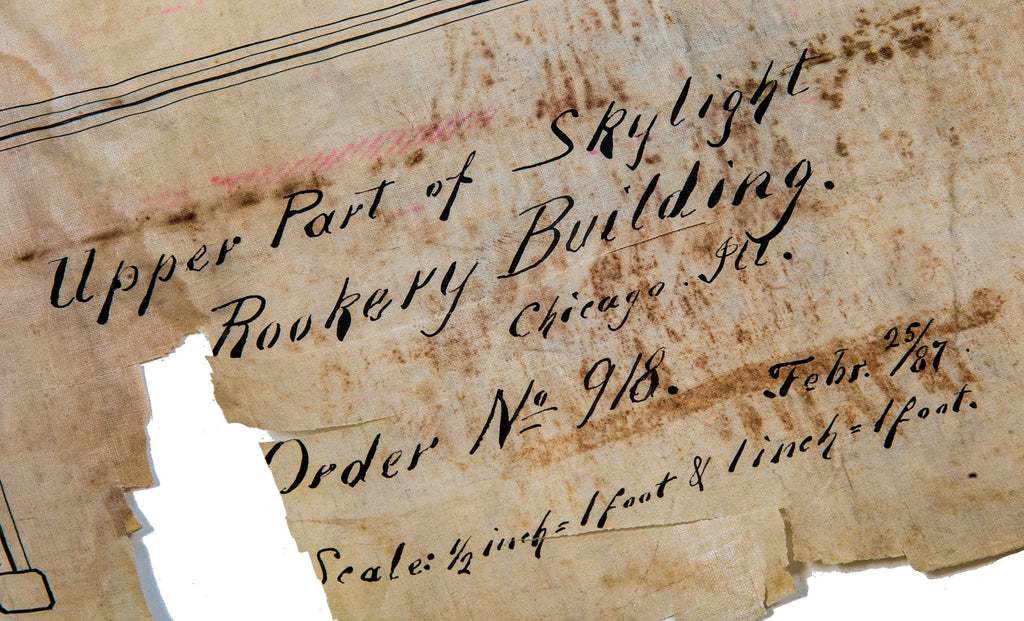 Upper Part of Skylight
Rookery Building.
Chicago. Ill.
Order No 918. Febr. 25/87.
Scale: 1/2 inch = 1 foot & 1 inch = 1 foot.